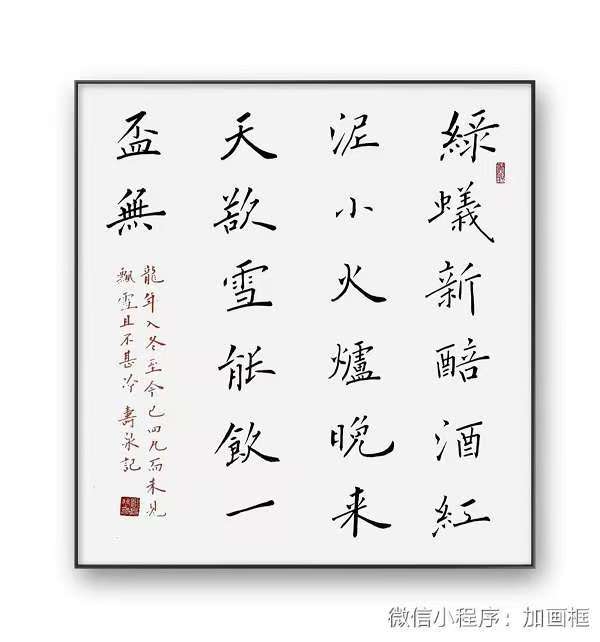 綠蟻新醅酒紅
泥小火爐晚来
天欲雪能飲一
盃無
龍年入冬至今已四九而未見
飄雪且不甚冷 壽記
微信小程序：加画框